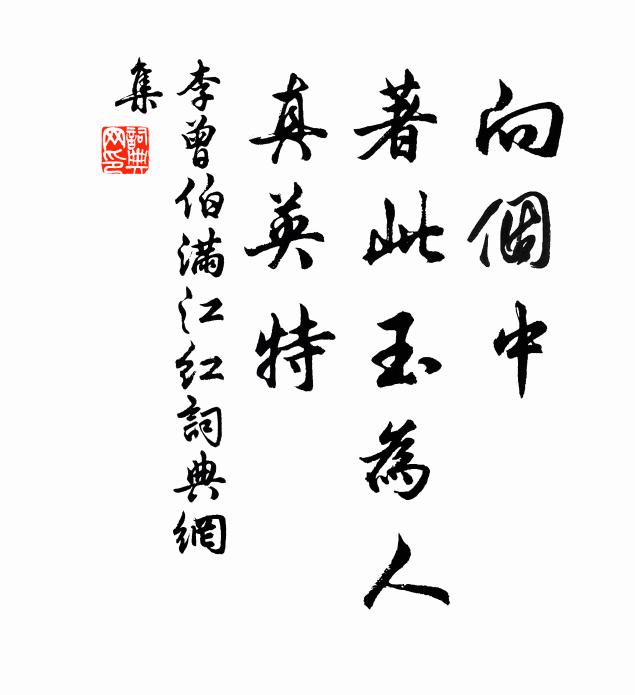 向個中
著此玉為人
真英特
李曾伯滿江紅詞典網
集
詞典
网印